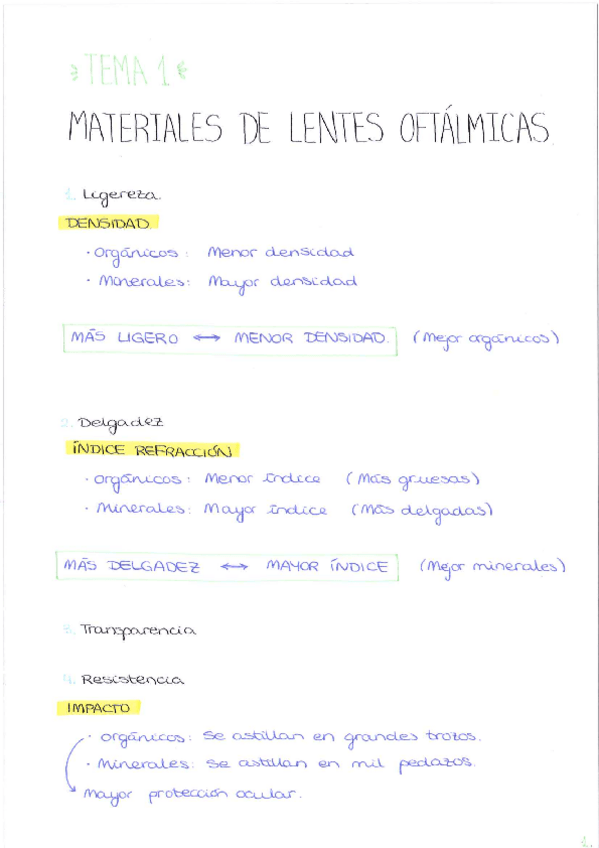 TEMA 1
MATERIALES DE LENTES OFTÁLMICAS
1. Ligereza.
DENSIDAD.
· Orgánicos: Menor densidad
· Minerales: Mayor densidad
MÁS LIGERO ↔ MENOR DENSIDAD. (Mejor orgánicos)
2. Delgadez
ÍNDICE REFRACCIÓN
· Orgánicos: Menor índice (Más gruesas)
· Minerales: Mayor índice (Más delgadas)
MÁS DELGADEZ ↔ MAYOR ÍNDICE (Mejor minerales)
3. Transparencia
4. Resistencia
IMPACTO
· Orgánicos: Se astillan en grandes trozos.
· Minerales: Se astillan en mil pedazos.
Mayor protección ocular.
1.